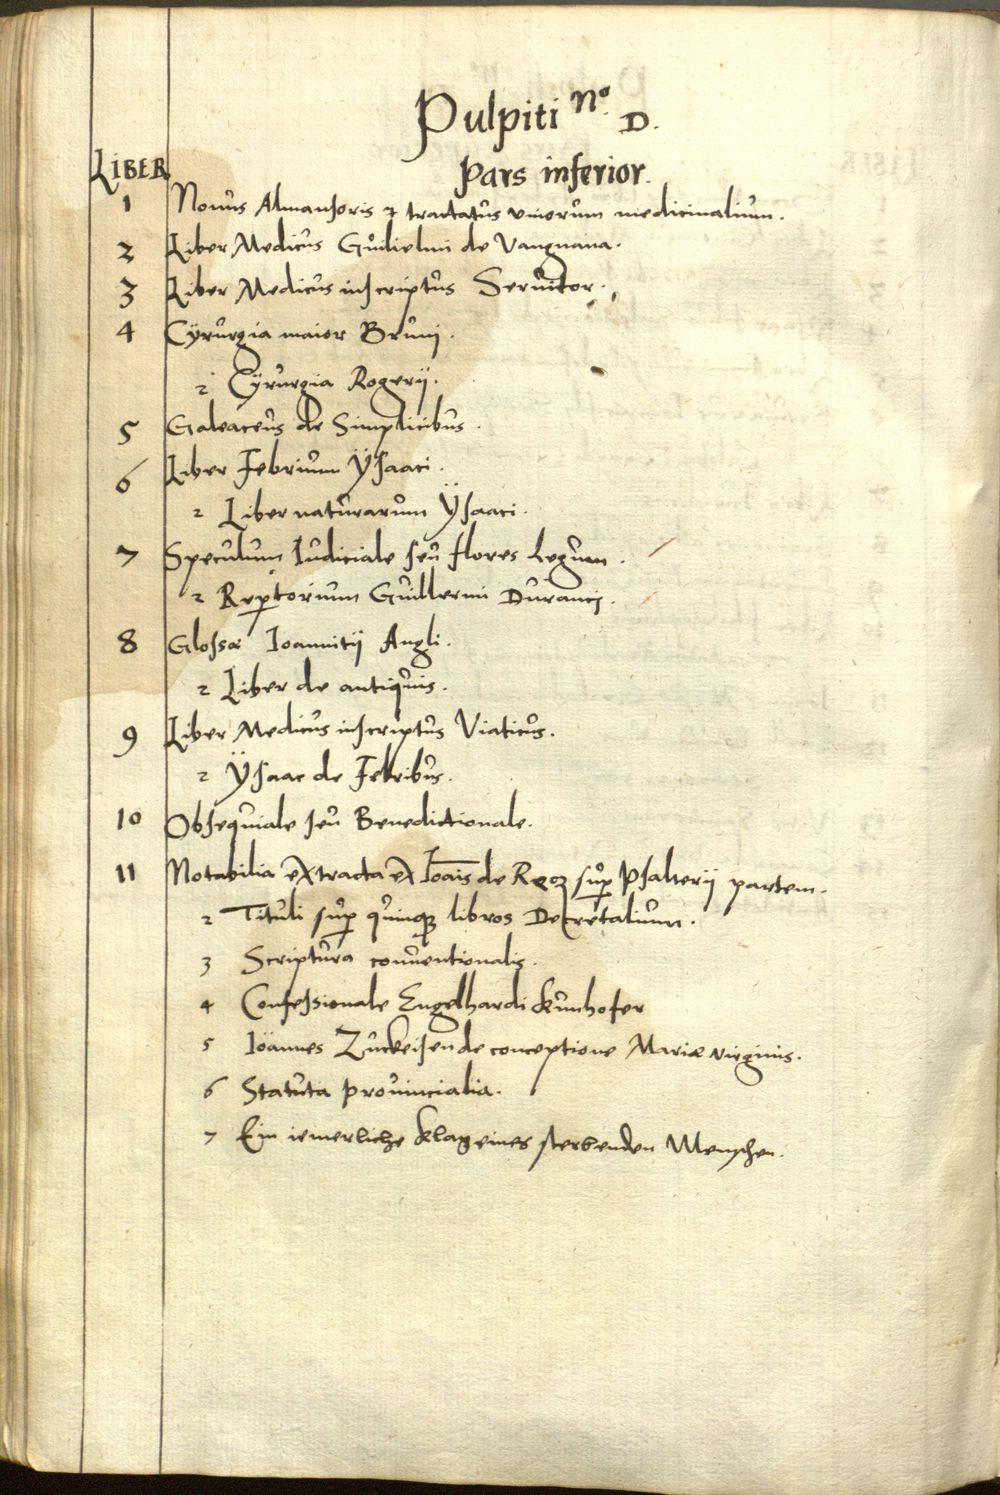 Pulpiti Nº. D.
LIBER
Pars inferior.
1 Nonus Almansoris & tractatus vinorum medicinalium.
2 Liber Medicus Guilielmi de Vangnana.
3 Liber Medicus inscriptus Seruitor.
4 Cÿrurgia maior Brunij.
2 Cÿrurgia Rogerij.
5 Galeaceus de Simplicibus.
6 Liber Febrium Ÿsaaci.
2 Liber naturarum Ÿsaaci.
7 Speculum Iudiciale seu flores Legum.
2 Reptorium Guillermi Durancj.
8 Glossæ Ioannitij Angli.
2 Liber de antiquis.
9 Liber Medicus inscriptus Viaticus.
2 Ÿsaac de Febribus.
10 Obsequiale seu Benedictionale.
11 Notabilia extracta ex Ioais de sup Psalterij partem.
2 Tituli sup quinq libros Decretalium.
3 Scriptura conuentionalis.
4 Confessionale Engelhardi Kunhofer
5 Iöannes Zuckeisen de conceptione Mariæ virginis.
6 Statuta prouincialia.
7 Ein iemerliche klag eines sterbenden Menschen.